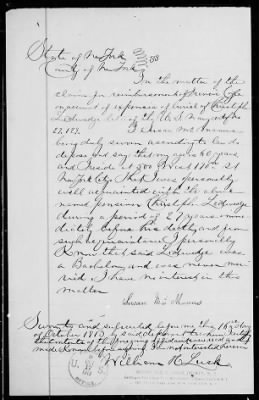 State of New York
County of New York } SS
In the matter of the
claim for reimbursement of
on account of expenses of burial of Christoph
Ledwedge late of the U.S. Navy
I Susan McManus
being duly sworn according to law do
depose and say that my age is 60 years
and I reside at 300 West
New York City. That I was personally
well acquainted with the above
named pensioner Christoph Ledwedge
during a period of 27 years imme
diately before his death, and from
such acquaintance I personally
know that said Ledwedge was
a Bachelor, and was never mar
ried. I have no interest in this
matter.
Susan McManus
Sworn to and subscribed before me this 16th day
of October
the contents of the foregoing
made known before signing
William H. Luck
U. S.